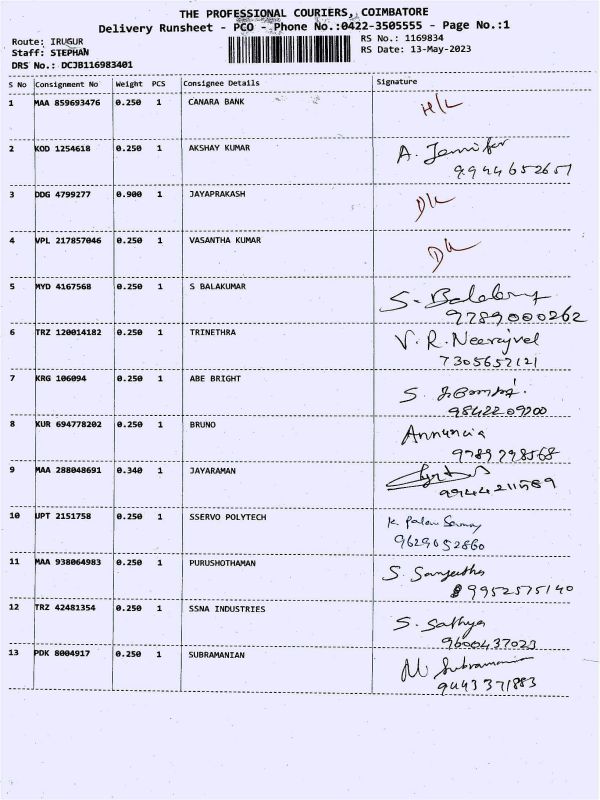 THE PROFESSIONAL COURIERS, COIMBATORE
Delivery Runsheet - PCO - Phone No.:0422-3505555 - Page No.:1
Route: IRUGUR
RS No.: 1169834
Staff: STEPHAN
RS Date: 13-May-2023
DRS No.: DCJB116983401
S No Consignment No Weight PCS Consignee Details Signature
1 MAA 859693476 0.250 1 CANARA BANK
2 KOD 1254618 0.250 1 AKSHAY KUMAR A. Jennifer
9944652657
3 DDG 4799277 0.900 1 JAYAPRAKASH D/L
4 VPL 217857046 0.250 1 VASANTHA KUMAR D/L
5 MYD 4167568 0.250 1 S BALAKUMAR S.
9789000262
6 TRZ 120014182 0.250 1 TRINETHRA V. R. Neerajvel
7305657121
7 KRG 106094 0.250 1 ABE BRIGHT S.
9842209200
8 KUR 694778202 0.250 1 BRUNO Annuncia
9789798568
9 MAA 288048691 0.340 1 JAYARAMAN
9944211589
10 UPT 2151758 0.250 1 SSERVO POLYTECH K. Palani Samy
9629052860
11 MAA 938064983 0.250 1 PURUSHOTHAMAN S. Sangeetha
9952575140
12 TRZ 42481354 0.250 1 SSNA INDUSTRIES S. Sathya
9600437023
13 PDK 8004917 0.250 1 SUBRAMANIAN M Subramanian
9443371883